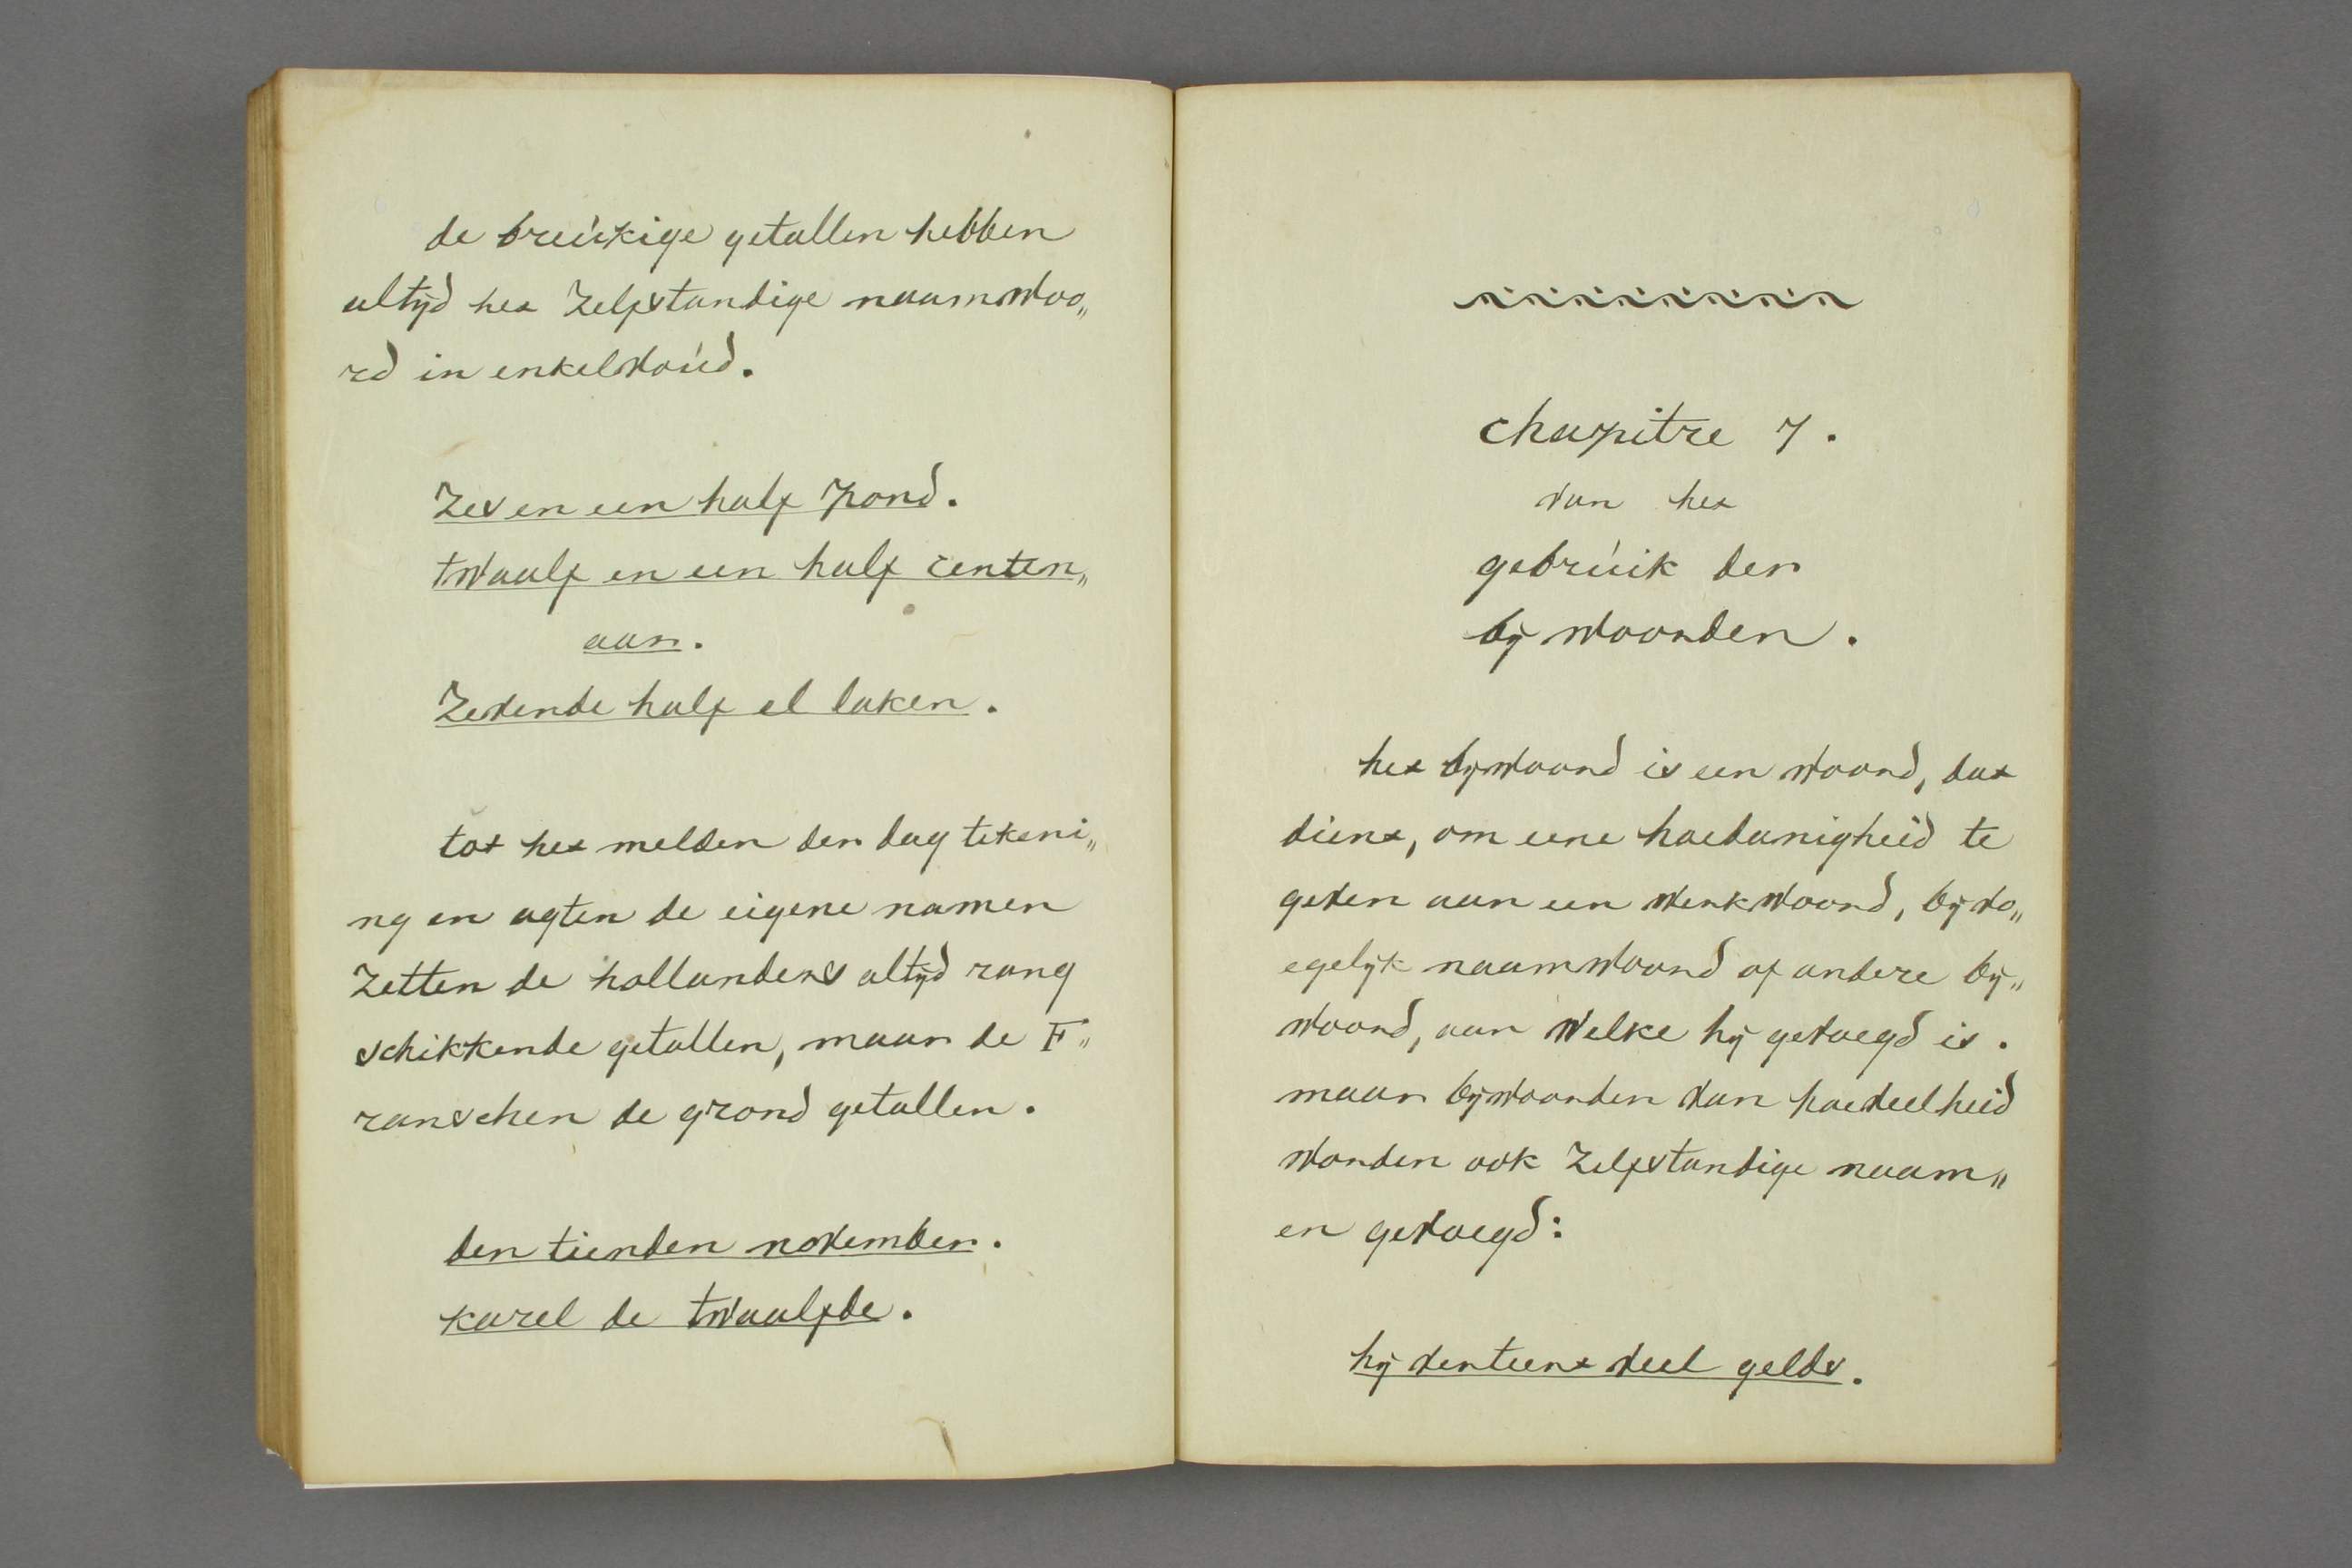 de breúkige getallen hebben
altÿd het Zelfstandige naamwoo„
rd in enkelvoúd.
Zes en een half pond.
twaalf en een half centen„
aar.
Zevende half el laken.
tot het melden der dag tekeni„
ng en agter de eigene namen
Zetten de hollanders altÿd rang
schikkende getallen, maar de F„
ranschen de grond getallen.
den tienden november.
karel de twaalfde.
chapitre 7.
van het
gebrúik der
bÿ woorden.
het bÿwoord is een woord, dat
dient, om eene hoedanigheid te
geven aan een werkwoord, bÿvo„
egelÿk naamwoord of andere bÿ„
woord, aan welke hÿ gevoegd is.
maar bÿwoorden van hoeveelheid
worden ook Zelfstandige naam„
en gevoegd:
hÿ verteert veel gelds.